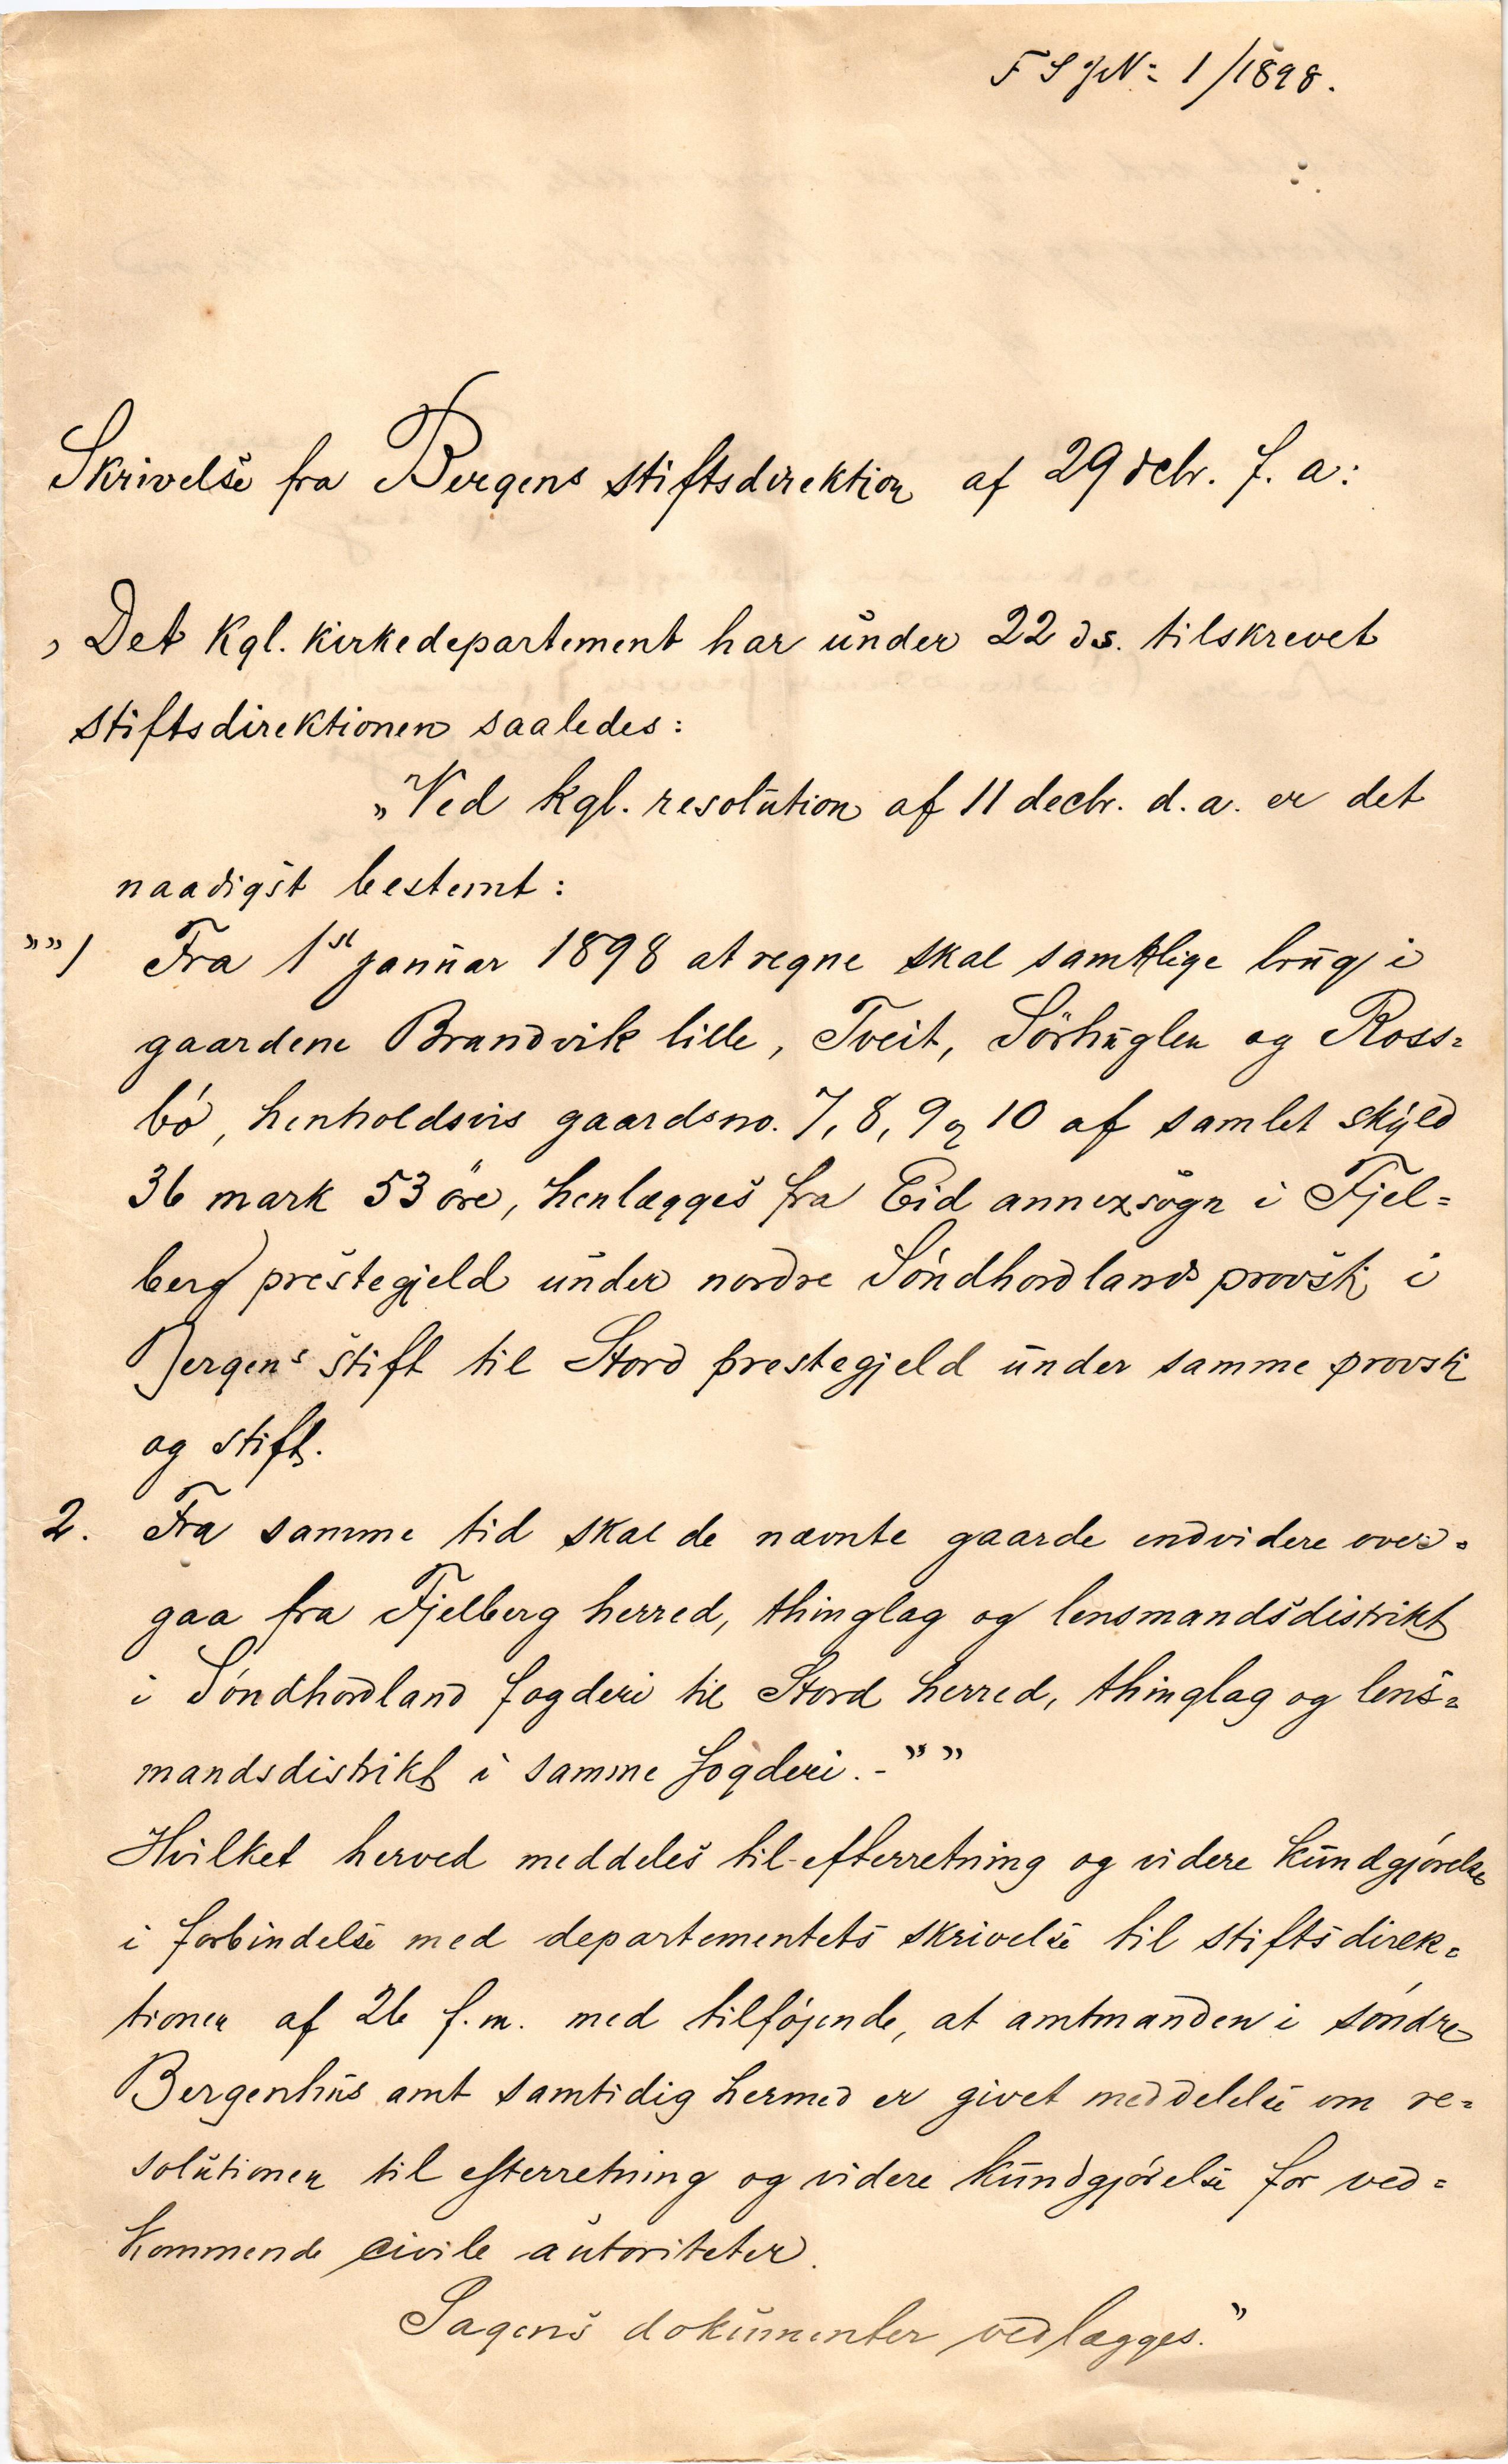 F S J N: 1/1898.
Skrivelse fra Bergens stiftsdirektion af 29 decbr. f. a:
„Det kgl. kirkedepartement har under 22 ds. tilskrevet
stiftsdirektionen saaledes:
„Ved kgl. resolution af 11 decbr. d. a. er det
naadigst bestemt:
„„1 Fra 1st januar 1898 at regne skal samtlige brug i
gaardene Brandvik lille, Tveit, Sörhuglen og Ross=
bó, henholdsvis gaardsno. 7, 8, 9 og 10 af samlet skyld
36 mark 53 öre, henlægges fra Eid annexsogn i Fjel=
berg prestegjeld under nordre Söndhordlands provsti i
Bergens stift til Stord prestegjeld under samme provsti
og stift.
2. Fra samme tid skal de nævnte gaarde endvidere over=
gaa fra Fjelberg herred, thinglag og lensmandsdistrikt
i Söndhordland fogderi til Stord herred, thinglag og lens=
mandsdistrikt i samme fogderi.-””
Hvilket herved meddeles til efterretning og videre kundgjórelse
i forbindelse med departementets skrivelse til stiftsdirek=
tionen af 26 f. m. med tilföjende, at amtmanden i söndre
Bergenhus amt samtidig hermed er givet meddelelse om re=
solutionen til efterretning og videre kundgjörelse for ved=
kommende civile autoriteter.
Sagens dokumenter vedlægges.”